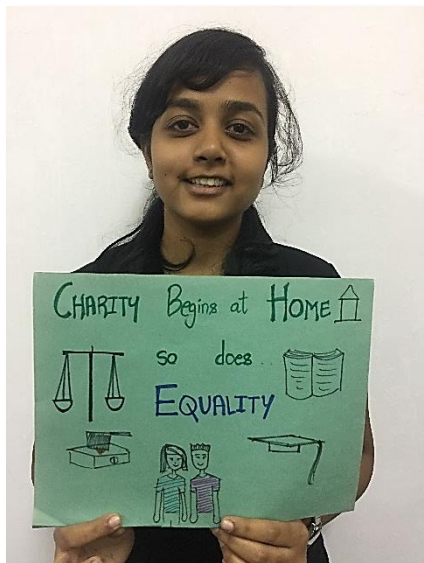 CHARITY Begins at HOME
so does..
EQUALITY